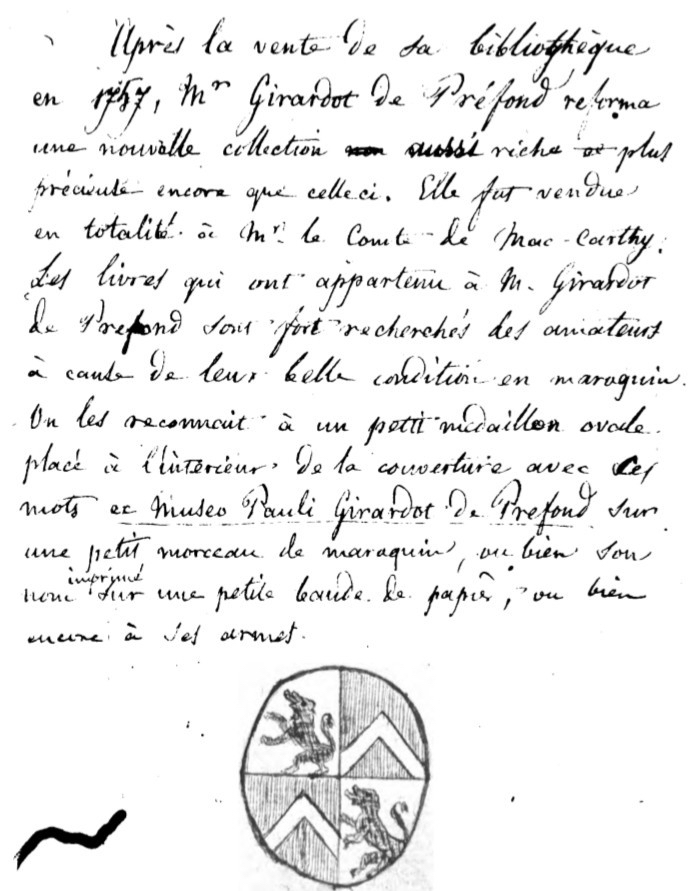 Après la vente de sa bibliothèque
en 1757, Mr Girardot de Préfond reforma
une nouvelle collection non aussi riche et plus
précieuse encore que celle ci. Elle fut vendue
en totalité à Mr. le Comte de Mac-Carthy.
Les livres qui ont appartenu à M. Girardot
de Prefond sont fort recherchés des amateurs
à cause de leur belle condition en maroquin.
On les reconnait à un petit médaillon ovale
placé à l'intérieur de la couverture avec ces
mots ex Museo Pauli Girardot de Prefond sur
une petit morceau de maroquin, ou bien son
nom imprimé sur une petite bande de papier, ou bien
encore à ses armes.